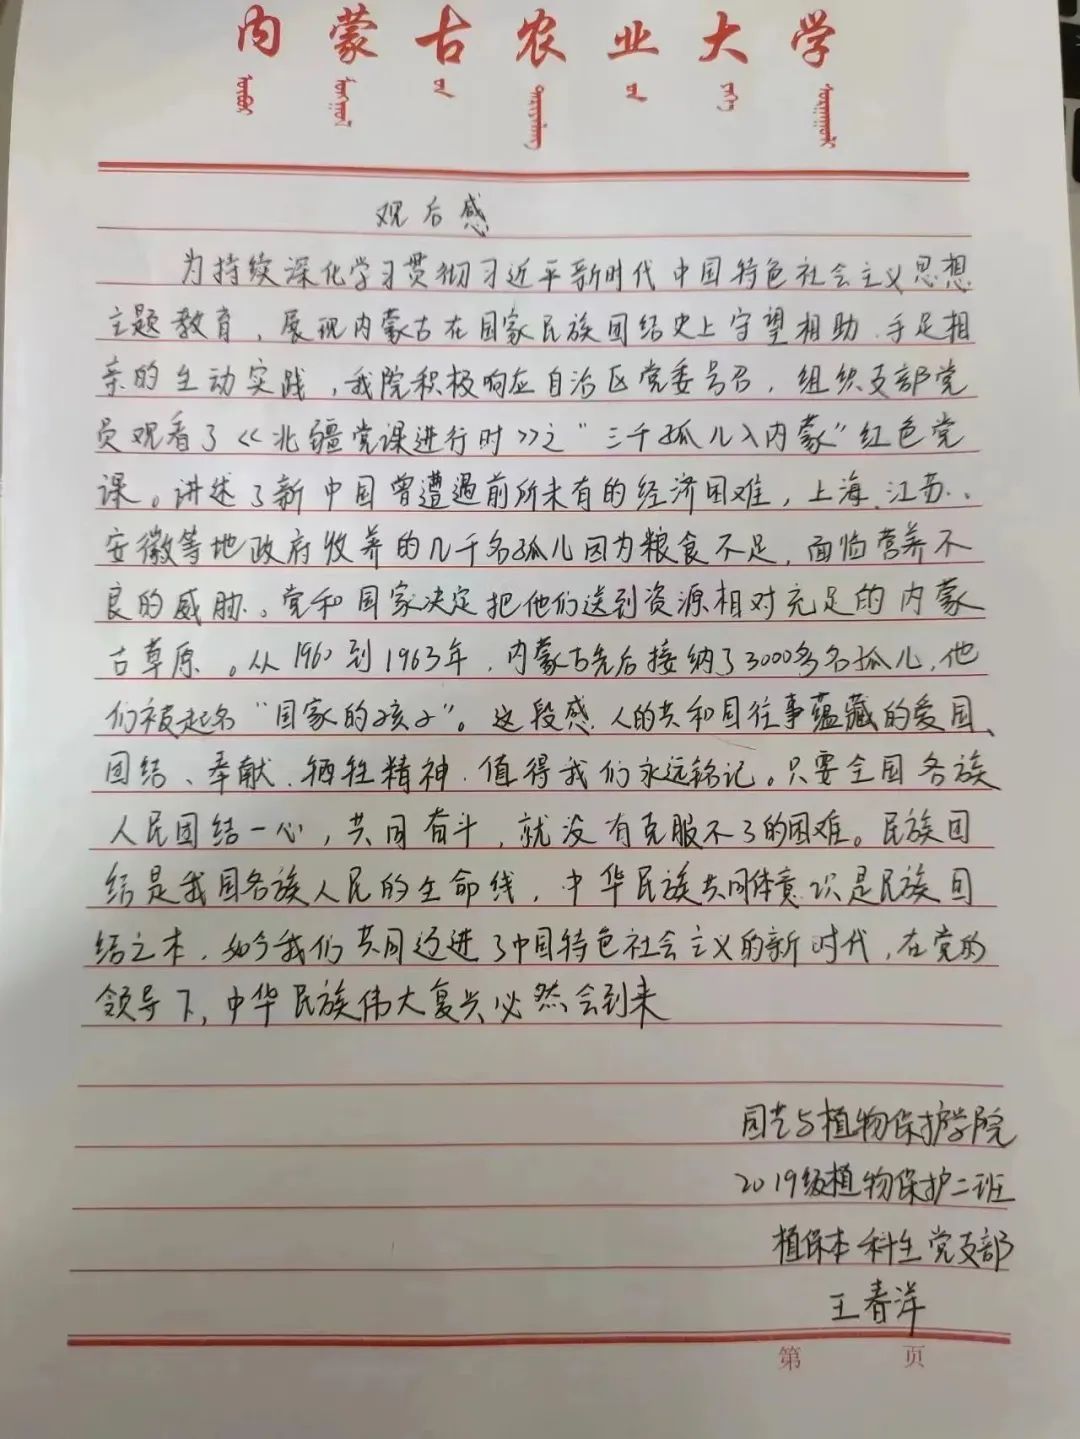 内蒙古农业大学
观后感
为持续深化学习贯彻习近平新时代中国特色社会主义思想
主题教育，展现内蒙古在国家民族团结史上守望相助、手足相
亲的生动实践，我院积极响应自治区党委号召，组织支部党
员观看了《北疆党课进行时》之“三千孤儿入内蒙”红色党
课。讲述了新中国曾遭遇前所未有的经济困难，上海、江苏、
安徽等地政府收养的几千名孤儿因为粮食不足，面临营养不
良的威胁。党和国家决定把他们送到资源相对充足的内蒙
古草原。从1960到1963年，内蒙古先后接纳了3000多名孤儿，他
们被起名“国家的孩子”。这段感人的共和国往事蕴藏的爱国、
团结、奉献、牺牲精神，值得我们永远铭记。只要全国各族
人民团结一心，共同奋斗，就没有克服不了的困难。民族团
结是我国各族人民的生命线，中华民族共同体意识是民族团
结之本，如今我们共同迈进了中国特色社会主义的新时代，在党的
领导下，中华民族伟大复兴必然会到来
园艺与植物保护学院
2019级植物保护二班
植保本科生党支部
王春洋
第 页